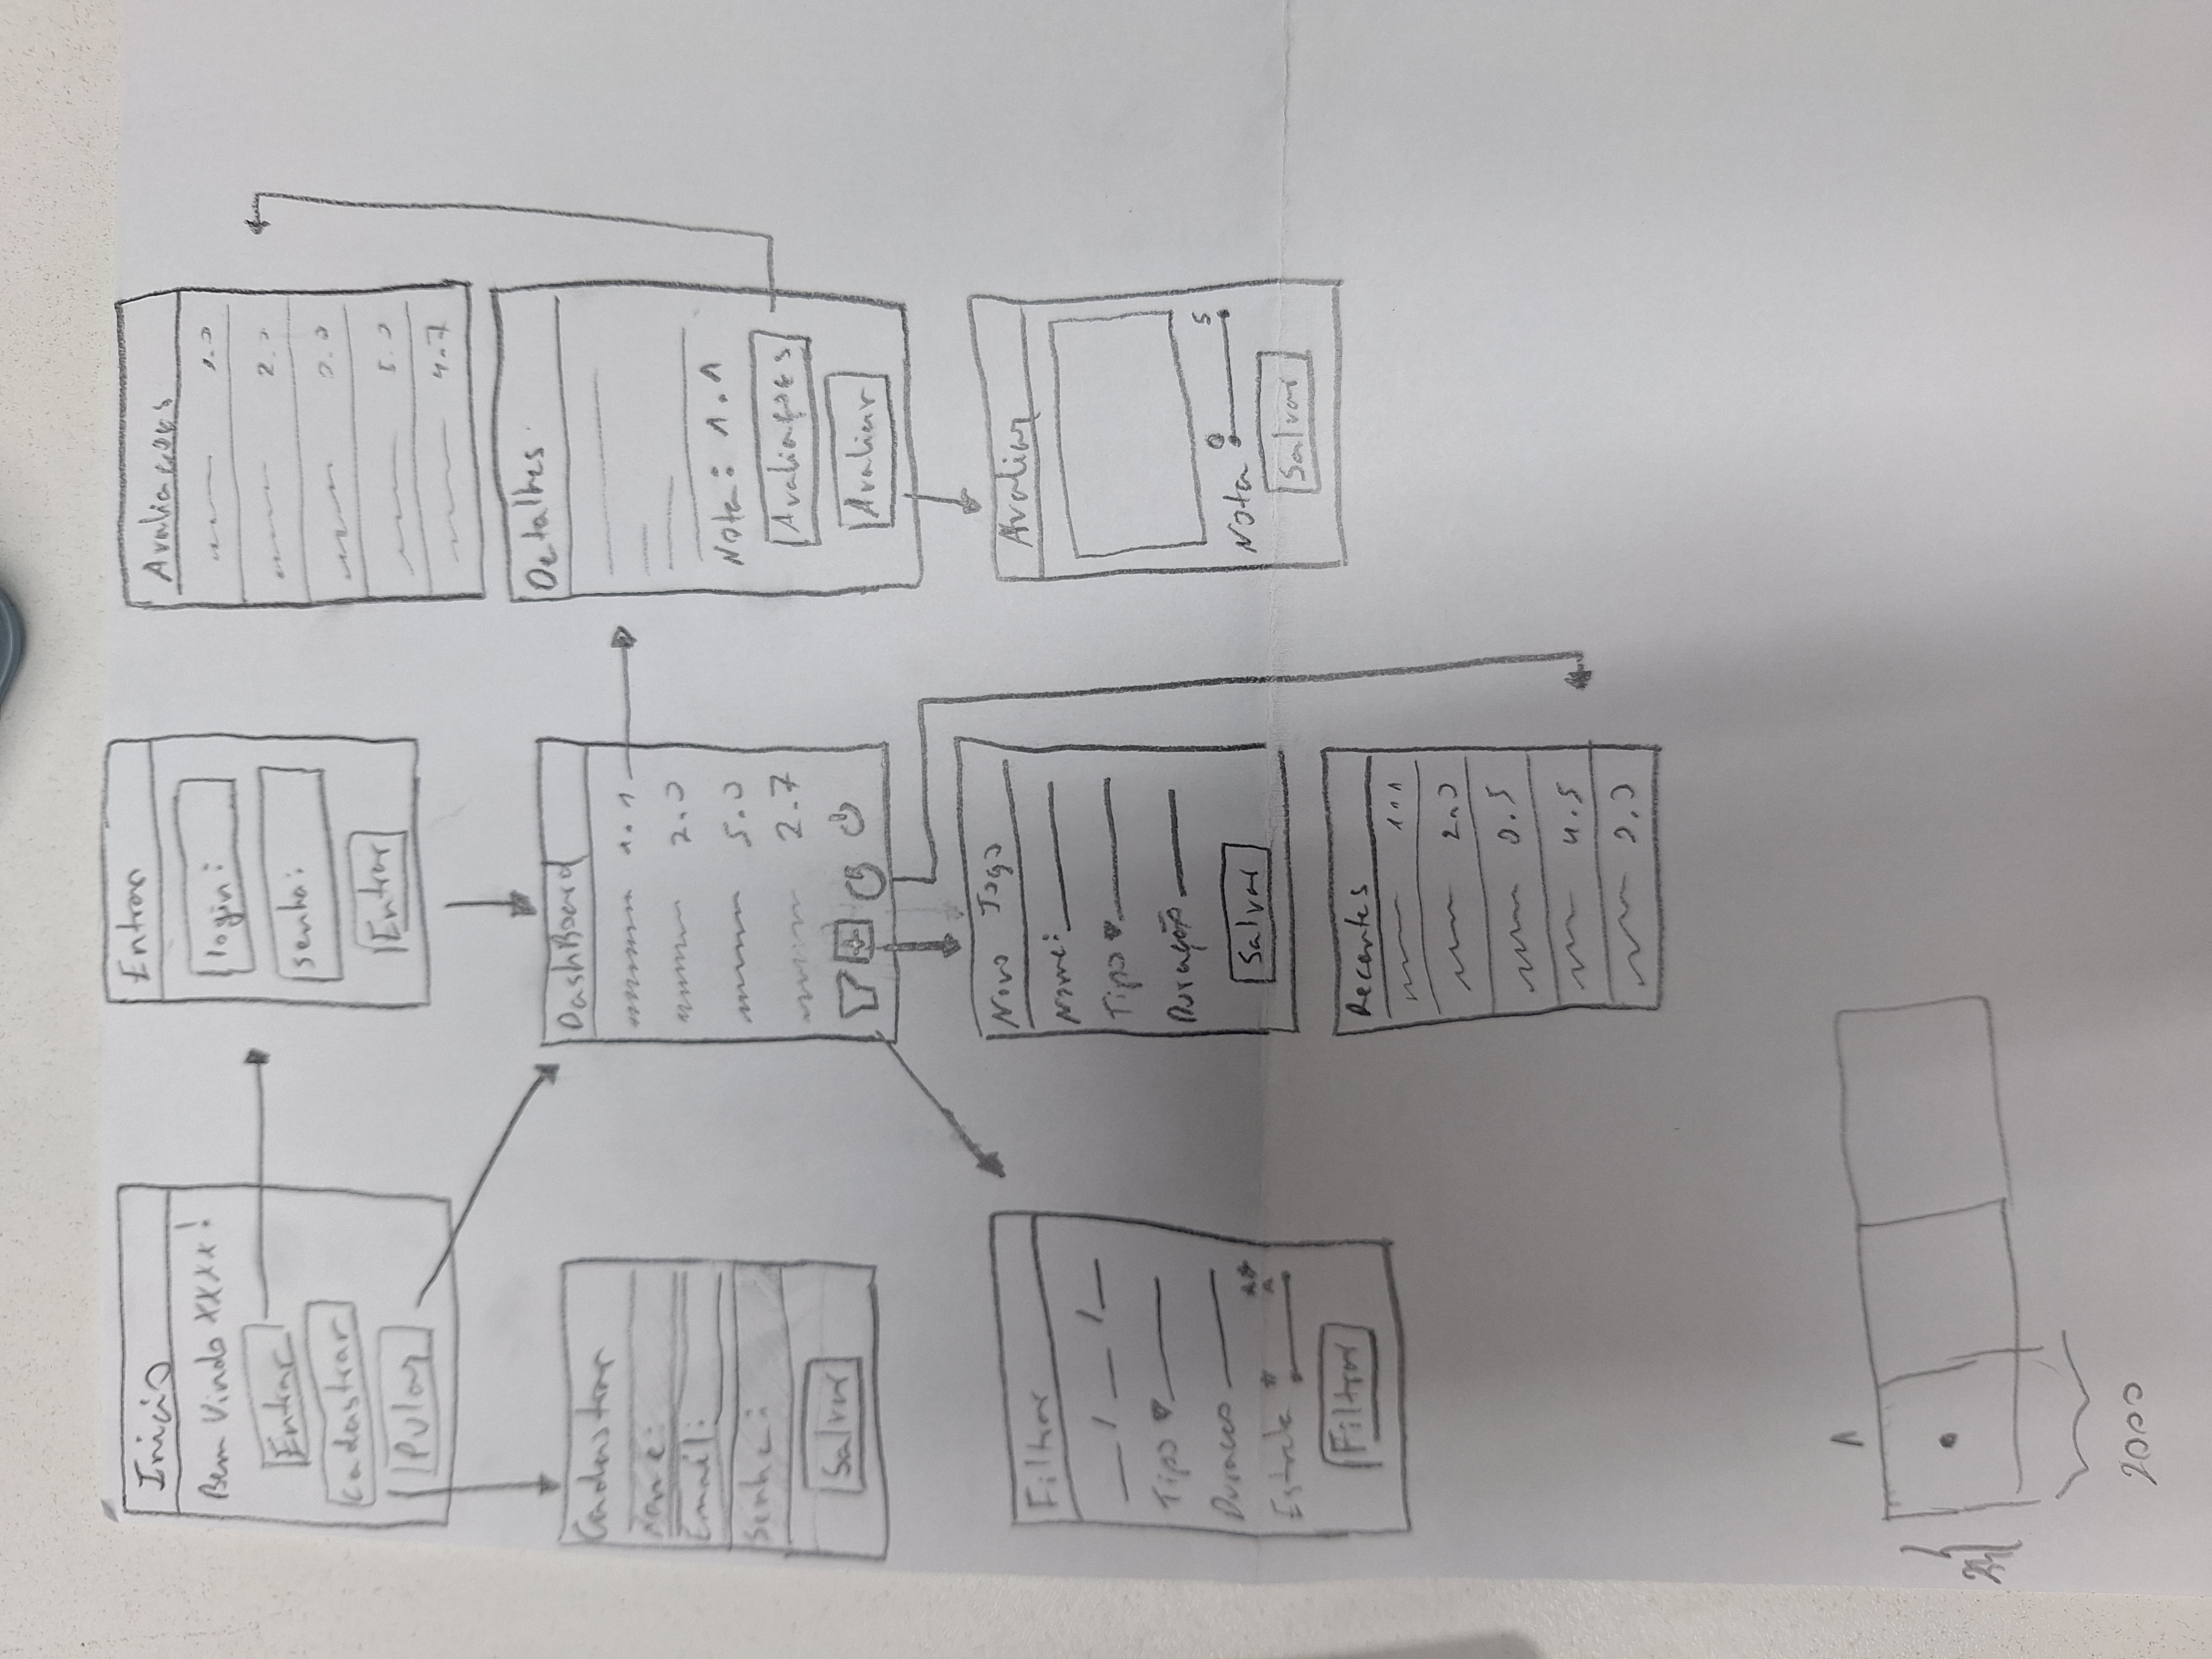 Inicio
Bem Vindo xxxx!
Entrar
Cadastrar
Pular
Entrar
login:
senha:
Entrar
Avaliações
2.0
5.0
4.7
Cadastrar
Nome:
Email:
Senha:
Salvar
DashBoard
1.1
2.0
5.0
2.7
Detalhes
Nota: 1.1
Avaliações
Avaliar
Filtrar
__/__/__
Tipo
Duracao
Estrela
Filtrar
Novo Jogo
Nome:
Tipo
Duração
Salvar
Avaliar
0 5
Nota
Salvar
Recentes
1.1
2.0
0.5
4.5
1
2000